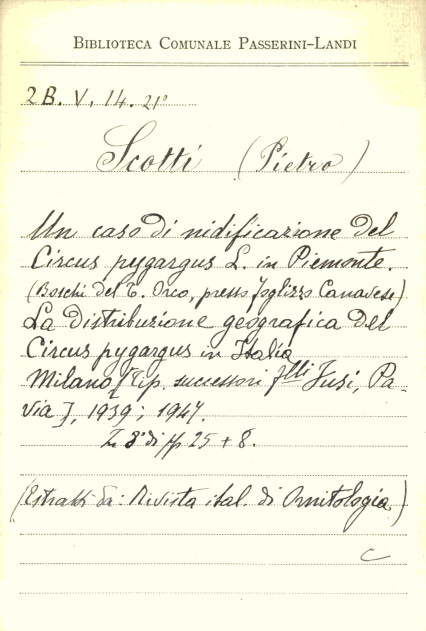 BIBLIOTECA COMUNALE PASSERINI-LANDI
2B. V. 14. 21°
Scotti (Pietro)
Un caso di nidificazione del
Circus pygargus L. in Piemonte.
(Boschi del T. Orco, presso Foglizzo Canavese)
La distribuzione geografica del
Circus pygargus in Italia
Milano [Tip. successori f.lli Fusi, Pa-
via], 1939; 1947.
In 8° di pp 25 + 8.
(Estratti da: Rivista ital. di Ornitologia)
C